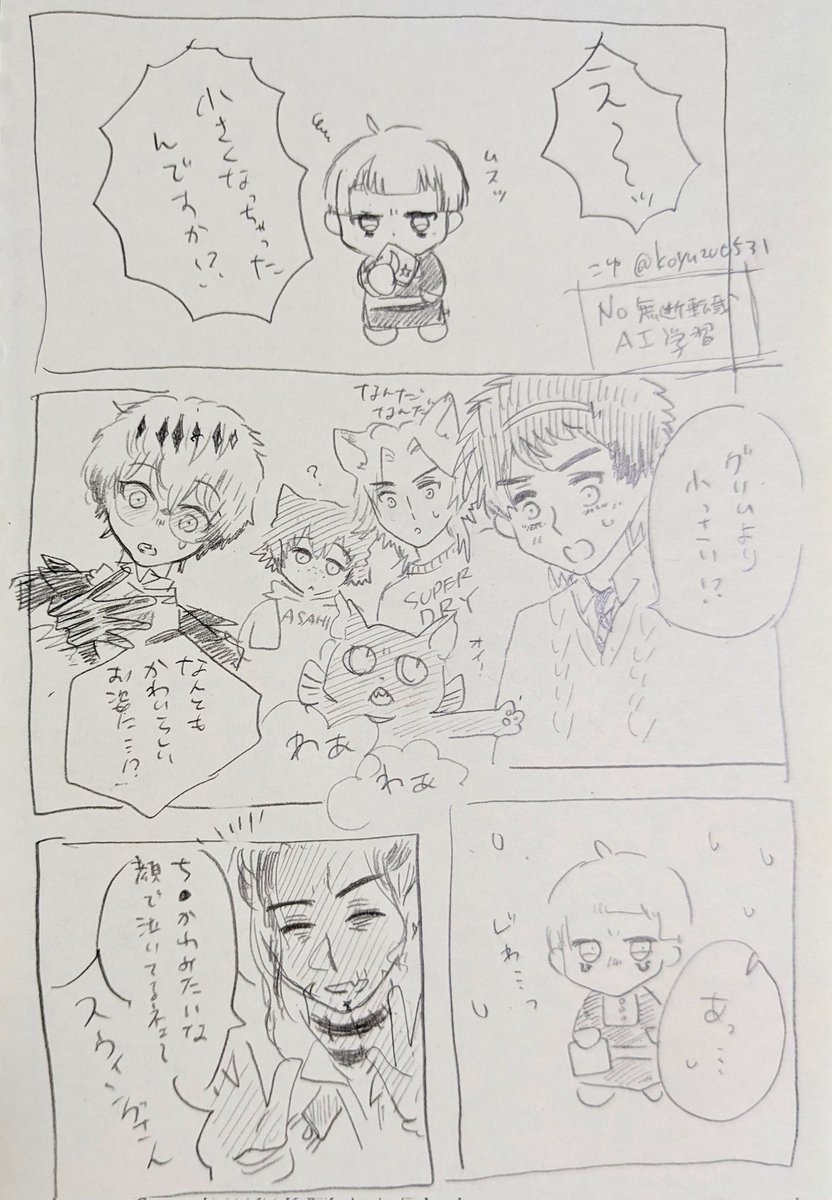 え〜〜ッ
ムスッ
小さくなっちゃった
んですか!?
こゆ @koyuzu0531
No 無断転載
AI学習
グリムより
小っさい!?
なんだ
なんだ
?
SUPER
DRY
ASAHI
オイ!
なんとも
かわいらしい
お姿に…!?
わあ
わあ
あっ…
じわ…っ
ち●かわみたいな
顔で泣いてるネェ〜
スウィングさん